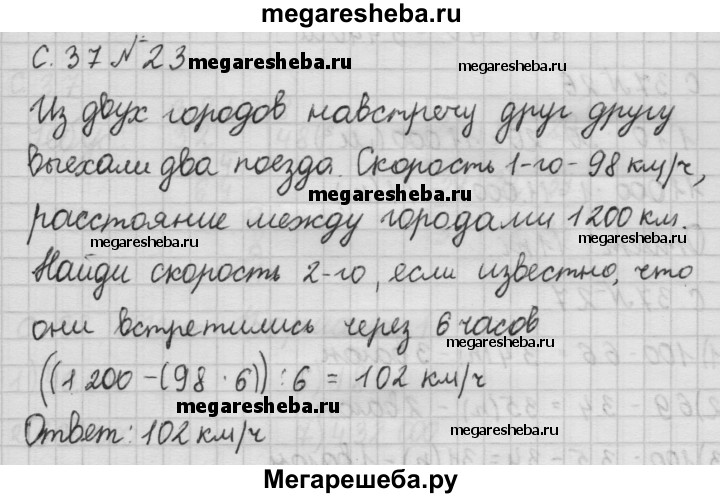 megaresheba.ru
С. 37 № 23 megaresheba.ru
megaresheba.ru
Из двух городов навстречу друг другу
выехали два поезда. Скорость 1-го - 98 км/ч,
megaresheba.ru
расстояние между городами 1200 км.
megaresheba.ru megaresheba.ru
Найди скорость 2-го, если известно, что
они встретились через 6 часов
megaresheba.ru
((1 200 - (98 · 6)) : 6 = 102 км/ч
megaresheba.ru
Ответ: 102 км/ч
megaresheba.ru
Мегарешеба.ру